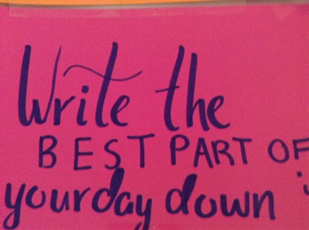 Write the
BEST PART OF
your day down